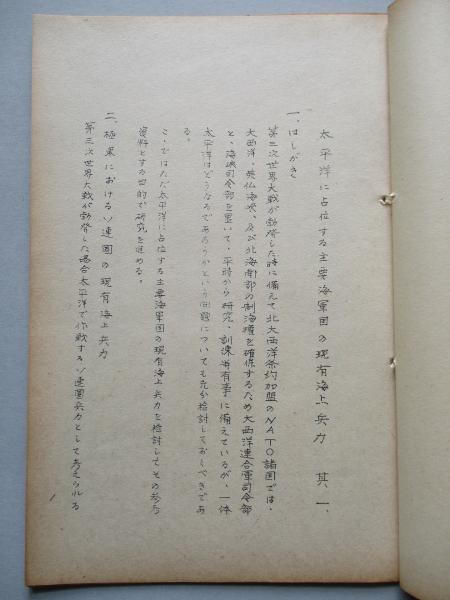 太平洋に占位する主要海軍国の現有海上兵力　其一、
一、はしがき
第三次世界大戦が勃発した時に備えて北大西洋条約加盟のNATO諸国では、
大西洋、英仏海峡、及び北海南部の制海権を確保するため大西洋連合軍司令部
と、海峡司令部を置いて、平時から研究、訓練等有事に備えているが、一体
太平洋はどうなるであろうかという問題についても充分検討しておくべきであ
る。
こゝではただ太平洋に占位する主要海軍国の現有海上兵力を検討してその参考
資料とする目的で研究を進める。
二、極東におけるソ連国の現有海上兵力
第三次世界大戦が勃発した場合太平洋で作戦するソ連国兵力として考えられる